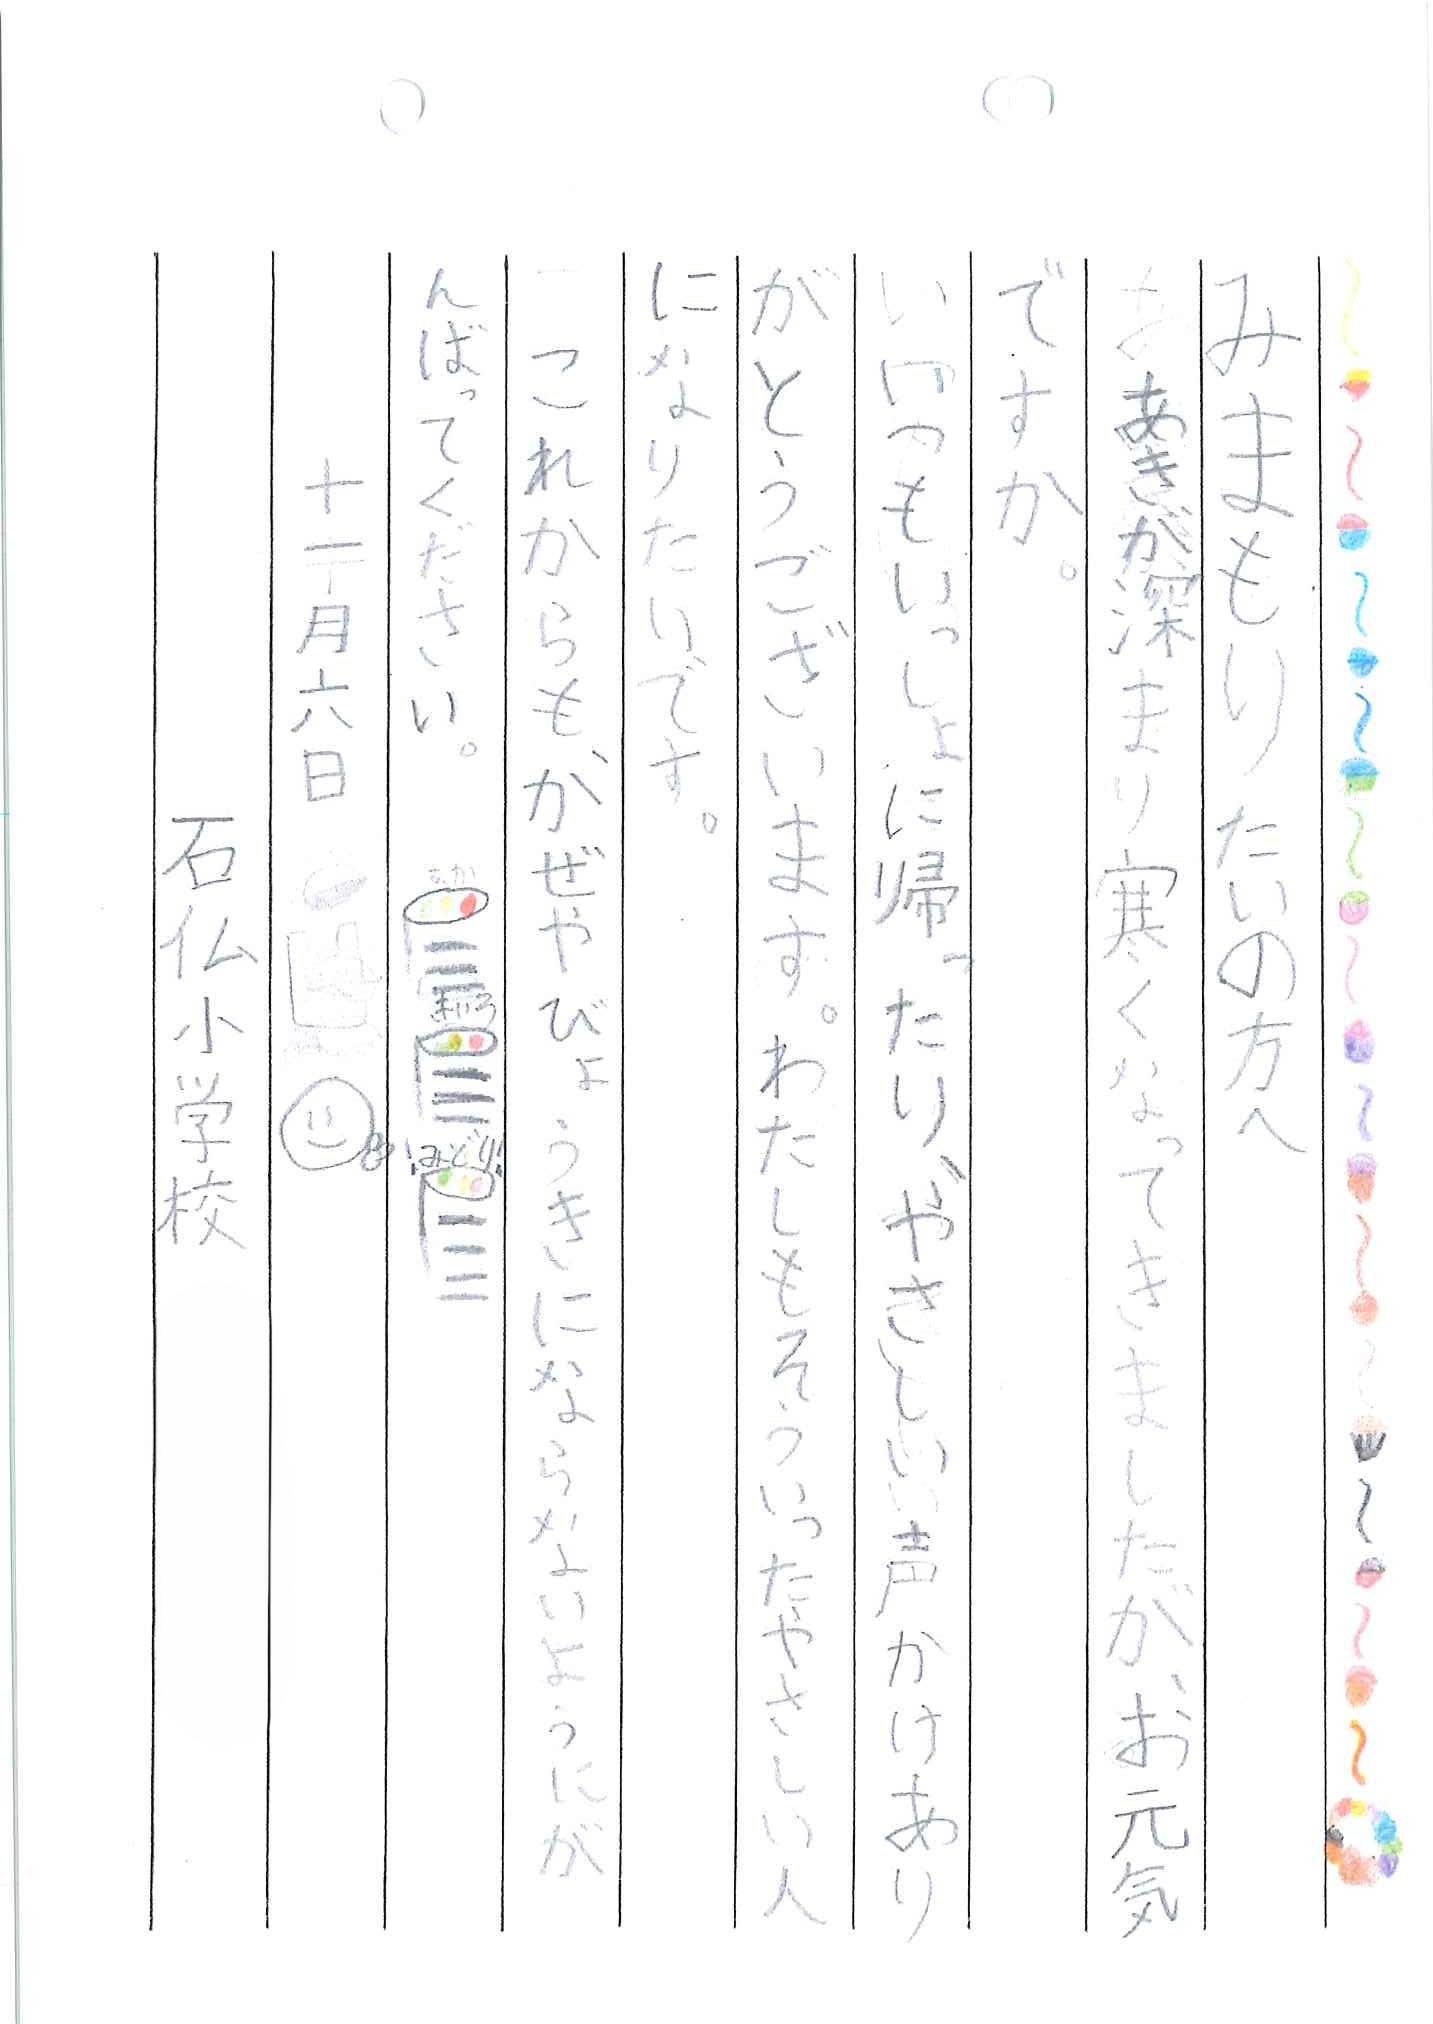 みまもりたいの方へ
あきが深まり寒くなってきましたが、お元気
ですか。
いつもいっしょに帰ったり、やさしい声かけあり
がとうございます。わたしもそういったやさしい人
になりたいです。
これからも、かぜやびょうきにならないようにが
んばってください。
あか
きいろ
みどり
十二月六日
石仏小学校